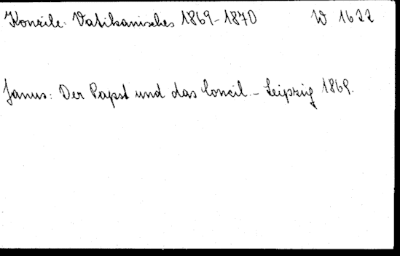 Konzile: Vatikanisches 1869-1870 W 1622
Janus: Der Papst und das Concil. - Leipzig 1869.